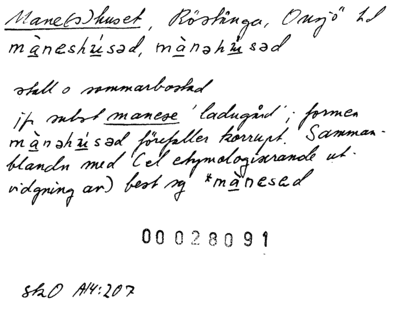 Mane(s)huset, Röstånga, Onsjö hd
màneshúsəd, mànəhúsəd
stall o sommarbostad
jfr subst manese 'ladugård'; formen
mànəhúsəd förefaller korrupt. Samman-
blandn med (el etymologiserande ut-
vidgning av) best sg *mànesəd
00028091
skO A14:207